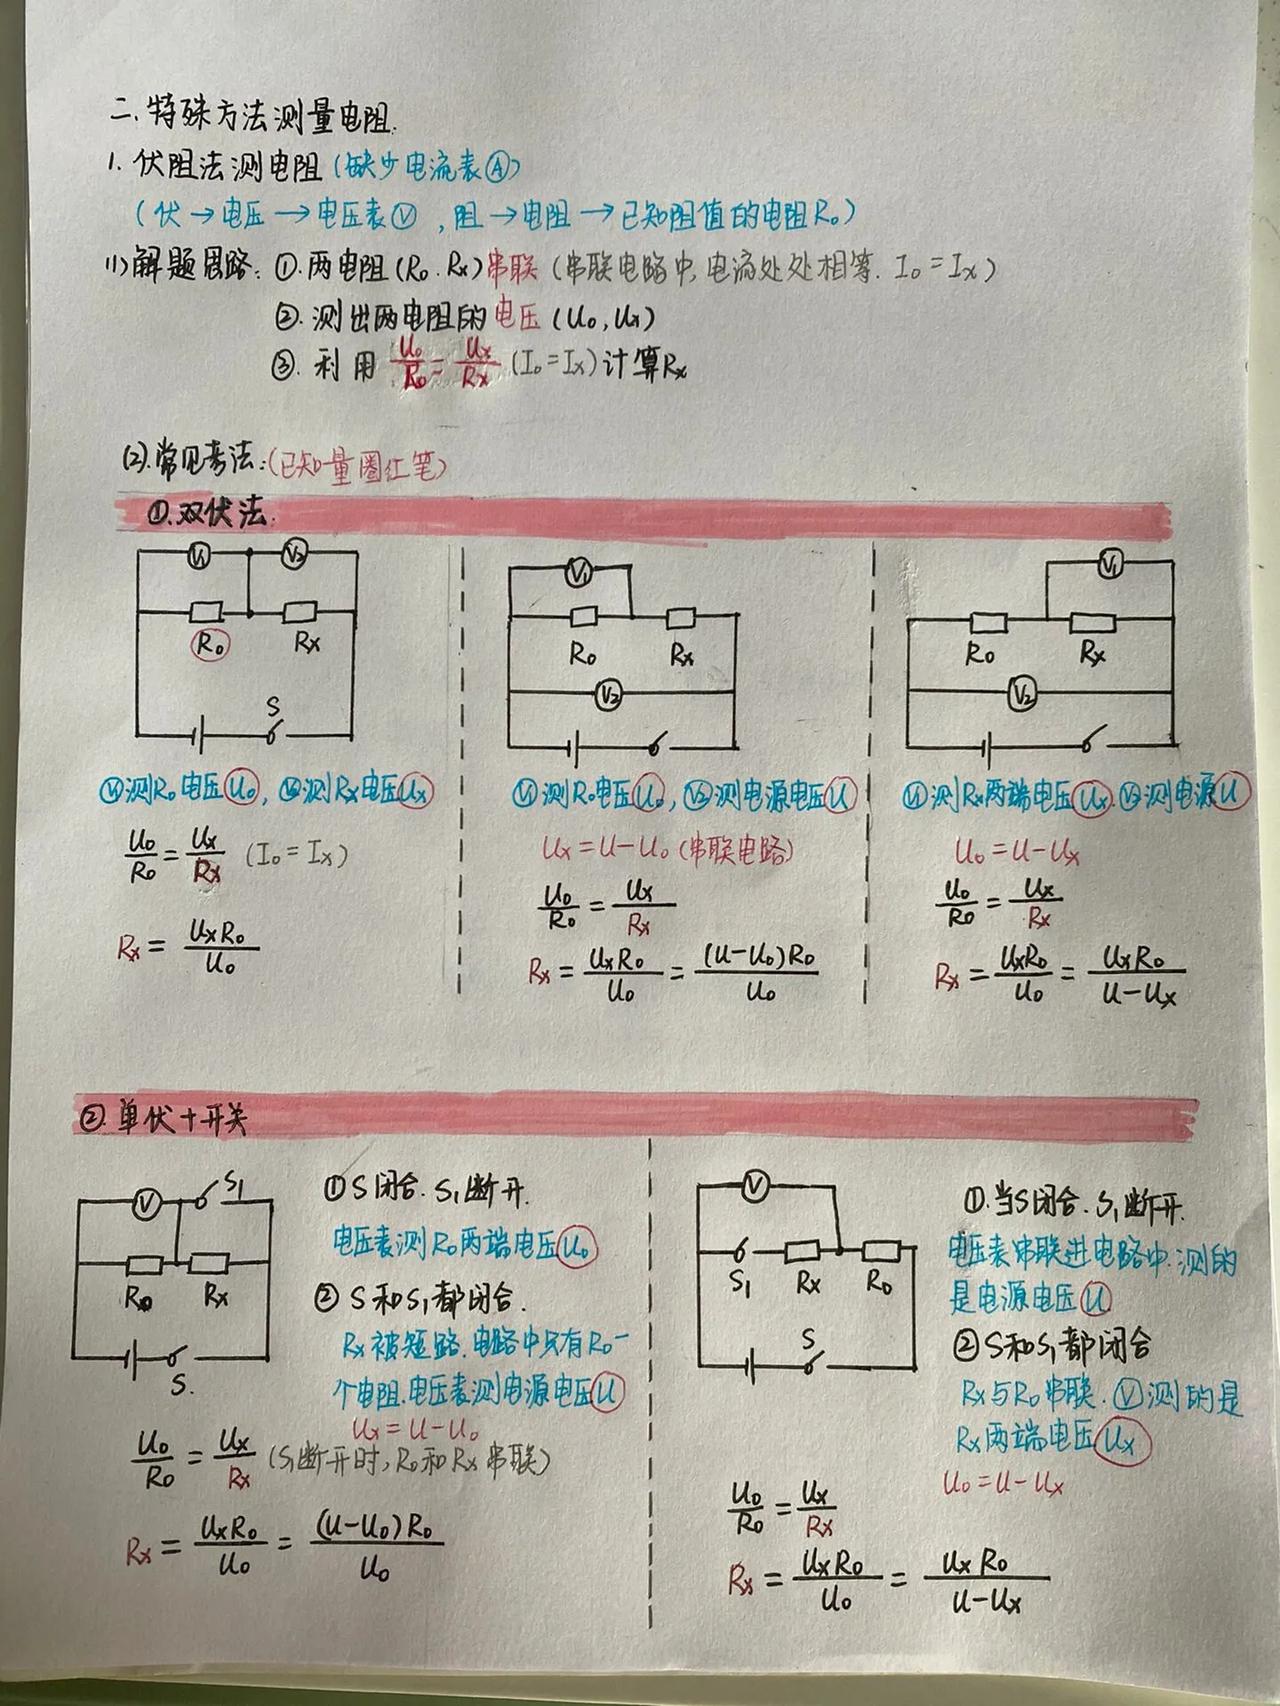 二.特殊方法测量电阻.
1. 伏阻法测电阻(缺少电流表Ⓐ)
(伏→电压→电压表Ⓥ,阻→电阻→已知阻值的电阻R₀)
(1)解题思路:①.两电阻(R₀.Rx)串联(串联电路中,电流处处相等. I₀=Ix)
②.测出两电阻的电压(U₀,Ux)
③.利用 U₀/R₀=Ux/Rx (I₀=Ix)计算Rx
(2).常见考法:(已知量圈红笔)
①.双伏法.
V₁ V₂
R₀ Rx
S
V₁测R₀电压U₀, V₂测Rx电压Ux
U₀/R₀=Ux/Rx (I₀=Ix)
Rx=UxR₀/U₀
V₁
R₀ Rx
V₂
V₁测R₀电压U₀, V₂测电源电压U
Ux=U-U₀(串联电路)
U₀/R₀=Ux/Rx
Rx=UxR₀/U₀=(U-U₀)R₀/U₀
V₁
R₀ Rx
V₂
V₁测Rx两端电压Ux.V₂测电源U
U₀=U-Ux
U₀/R₀=Ux/Rx
Rx=UxR₀/U₀=UxR₀/U-Ux
②.单伏+开关
V S₁
R₀ Rx
S.
①S闭合.S₁断开.
电压表测R₀两端电压U₀
②S和S₁都闭合.
Rx被短路.电路中只有R₀一
个电阻.电压表测电源电压U
Ux=U-U₀
U₀/R₀=Ux/Rx (S₁断开时,R₀和Rx串联)
Rx=UxR₀/U₀=(U-U₀)R₀/U₀
V
S₁ Rx R₀
S
①.当S闭合.S₁断开.
电压表串联进电路中.测的
是电源电压U
②S和S₁都闭合
Rx与R₀串联.Ⓥ测的是
Rx两端电压Ux
U₀=U-Ux
U₀/R₀=Ux/Rx
Rx=UxR₀/U₀=UxR₀/U-Ux